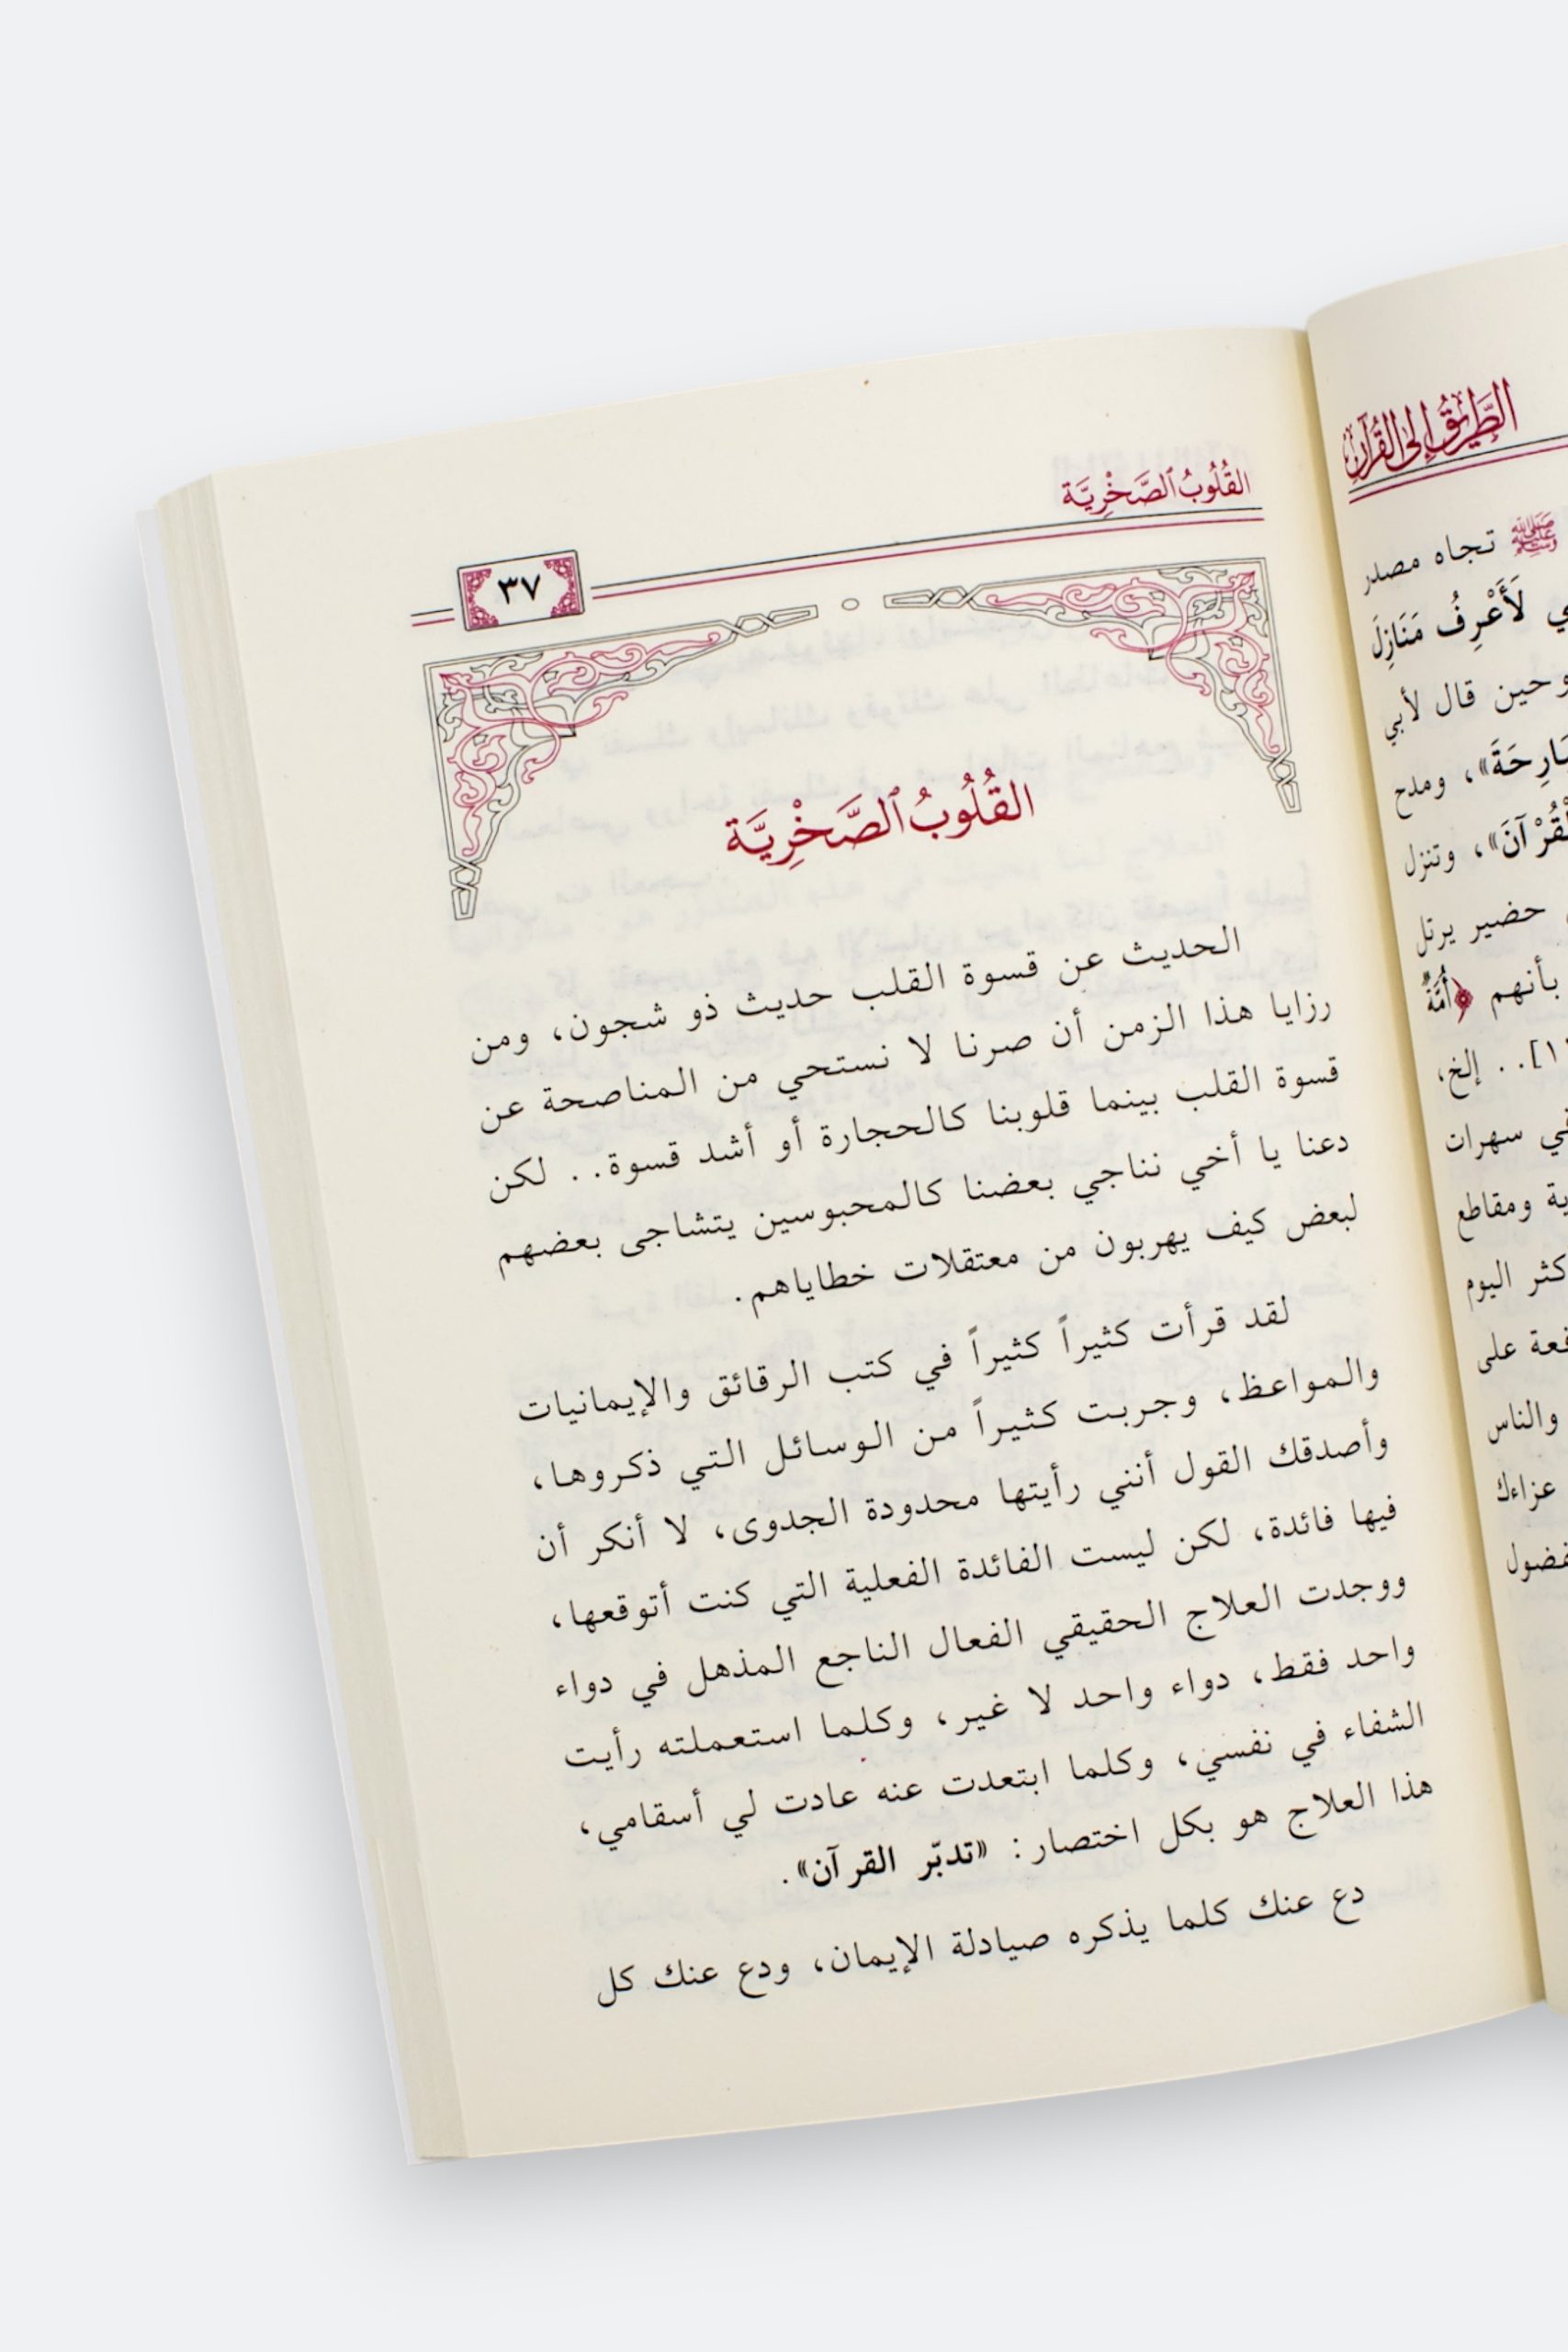 الطَّرِيقُ إِلَى القُرْآنِ
تجاه مصدر
لَأَعْرِفُ مَنَازِلَ
وحين قال لأبي
ومدح
القُرْآنَ»، وتنزل
حضير يرتل
بأنهم ﴿أُمَّةٌ
إلخ،
سهرات
ومقاطع
اليوم
على
والناس
عزاءك
القُلُوبُ ٱلصَّخْرِيَّة
٣٧
القُلُوبُ ٱلصَّخْرِيَّة
الحديث عن قسوة القلب حديث ذو شجون، ومن
رزايا هذا الزمن أن صرنا لا نستحي من المناصحة عن
قسوة القلب بينما قلوبنا كالحجارة أو أشد قسوة.. لكن
دعنا يا أخي نناجي بعضنا كالمحبوسين يتشاجى بعضهم
لبعض كيف يهربون من معتقلات خطاياهم.
لقد قرأت كثيراً كثيراً في كتب الرقائق والإيمانيات
والمواعظ، وجربت كثيراً من الوسائل التي ذكروها،
وأصدقك القول أنني رأيتها محدودة الجدوى، لا أنكر أن
فيها فائدة، لكن ليست الفائدة الفعلية التي كنت أتوقعها،
ووجدت العلاج الحقيقي الفعال الناجع المذهل في دواء
واحد فقط، دواء واحد لا غير، وكلما استعملته رأيت
الشفاء في نفسي، وكلما ابتعدت عنه عادت لي أسقامي،
هذا العلاج هو بكل اختصار: «تدبّر القرآن».
دع عنك كلما يذكره صيادلة الإيمان، ودع عنك كل